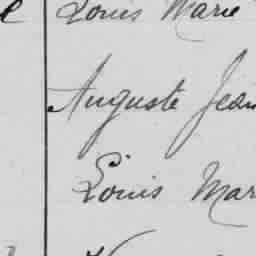 e Louis Marie
Auguste Jean
Louis Mar